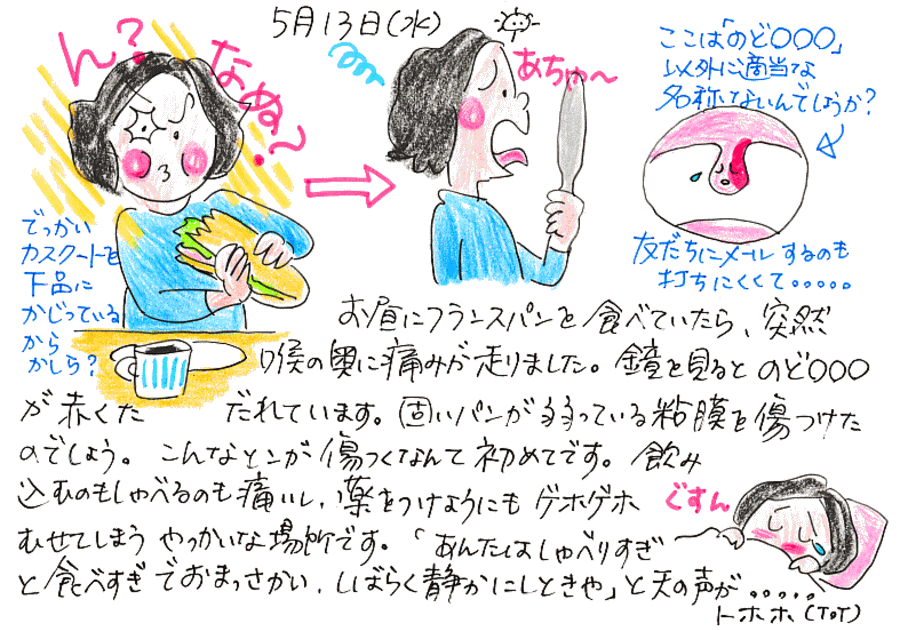 5月13日(水)
ん?
なぬ?
あちゃ～
ここは「のど○○○」
以外に適当な
名称ないんでしょうか?
友だちにメールするのも
打ちにくくて・・・・・
でっかい
カスクートを
下品に
かじっている
から
かしら?
お昼にフランスパンを食べていたら、突然
喉の奥に痛みが走りました。鏡を見るとのど○○○
が赤くた だれています。固いパンが弱っている粘膜を傷つけた
のでしょう。こんなとこが傷つくなんて初めてです。飲み
込むのもしゃべるのも痛いし、薬をつけようにもゲホゲホ
むせてしまうやっかいな場所です。「あんたはしゃべりすぎ
と食べすぎでおまっさかい、しばらく静かにしときや」と天の声が・・・・・
トホホ(ToT)
ぐすん